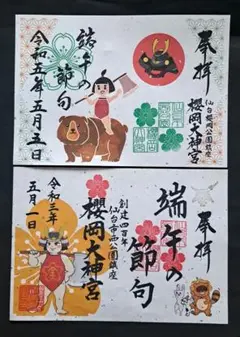 奉拝
仙台櫻岡公園鎮座
櫻岡大神宮
端午の
節句
令和五年五月五日
奉拝
端午の
節句
創建四百年
仙台市西公園鎮座
櫻岡大神宮
令和三年
五月一日